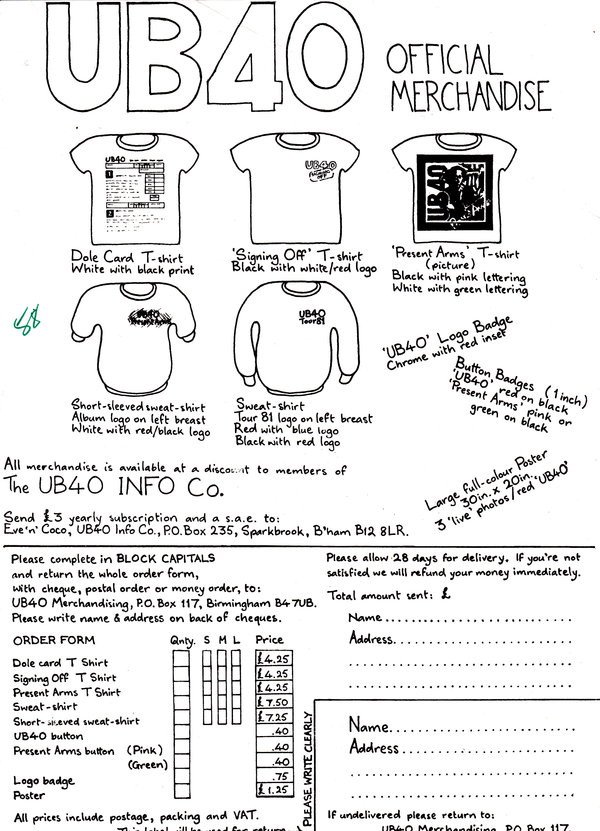 UB40
OFFICIAL
MERCHANDISE
UB40
1
2
UB40
Signing
Off
UB40
Dole Card T-shirt
White with black print
'Signing Off' T-shirt
Black with white/red logo
'Present Arms' T-shirt
(picture)
Black with pink lettering
White with green lettering
UB40
Present Arms
UB40
Tour 81
Short-sleeved sweat-shirt
Album logo on left breast
White with red/black logo
Sweat-shirt
Tour 81 logo on left breast
Red with blue logo
Black with red logo
'UB40' Logo Badge
Chrome with red inset
Button Badges (1 inch)
'UB40' red on black
'Present Arms' pink or
green on black
Large full-colour Poster
30in. x 20in.
3 'live' photos/red 'UB40'
All merchandise is available at a discount to members of
The UB40 INFO Co.
Send £3 yearly subscription and a s.a.e. to:
Eve 'n' Coco, UB40 Info Co., P.O. Box 235, Sparkbrook, B'ham B12 8LR.
Please complete in BLOCK CAPITALS
and return the whole order form,
with cheque, postal order or money order, to:
UB40 Merchandising, P.O. Box 117, Birmingham B4 7UB.
Please write name & address on back of cheques.
ORDER FORM Qnty. S M L Price
Dole card T Shirt £4.25
Signing Off T Shirt £4.25
Present Arms T Shirt £4.25
Sweat-shirt £7.50
Short-sleeved sweat-shirt £7.25
UB40 button .40
Present Arms button (Pink) .40
(Green) .40
Logo badge .75
Poster £1.25
All prices include postage, packing and VAT.
This label will be used for return
Please allow 28 days for delivery. If you're not
satisfied we will refund your money immediately.
Total amount sent: £
Name
Address
PLEASE WRITE CLEARLY
Name
Address
If undelivered please return to:
UB40 Merchandising, P.O. Box 117